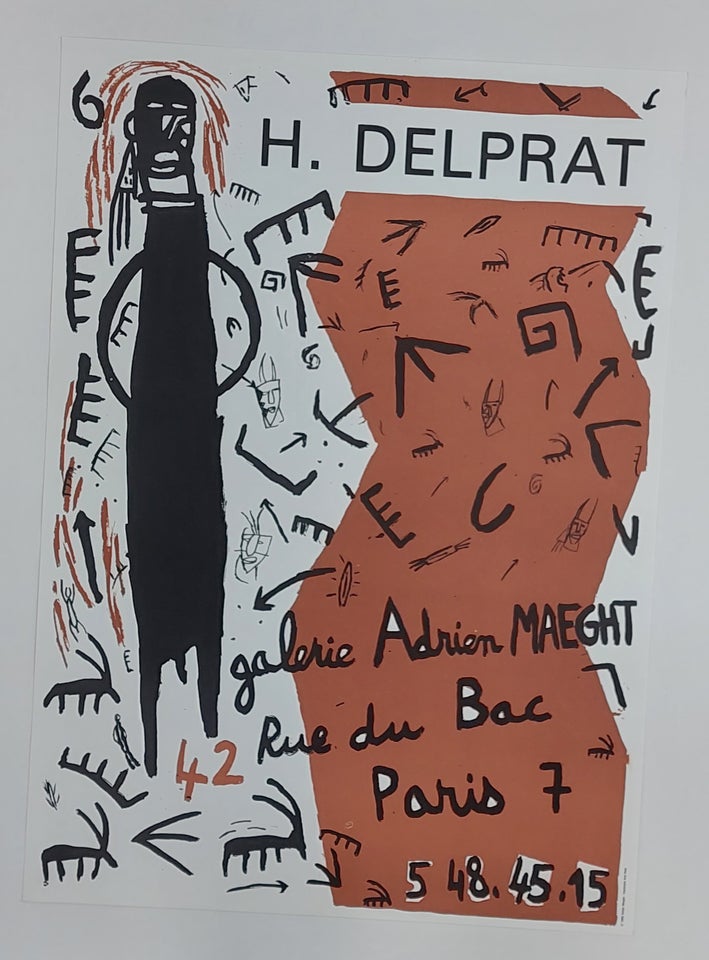 6
H. DELPRAT
galerie Adrien MAEGHT
42 Rue du Bac
Paris 7
548.45.15